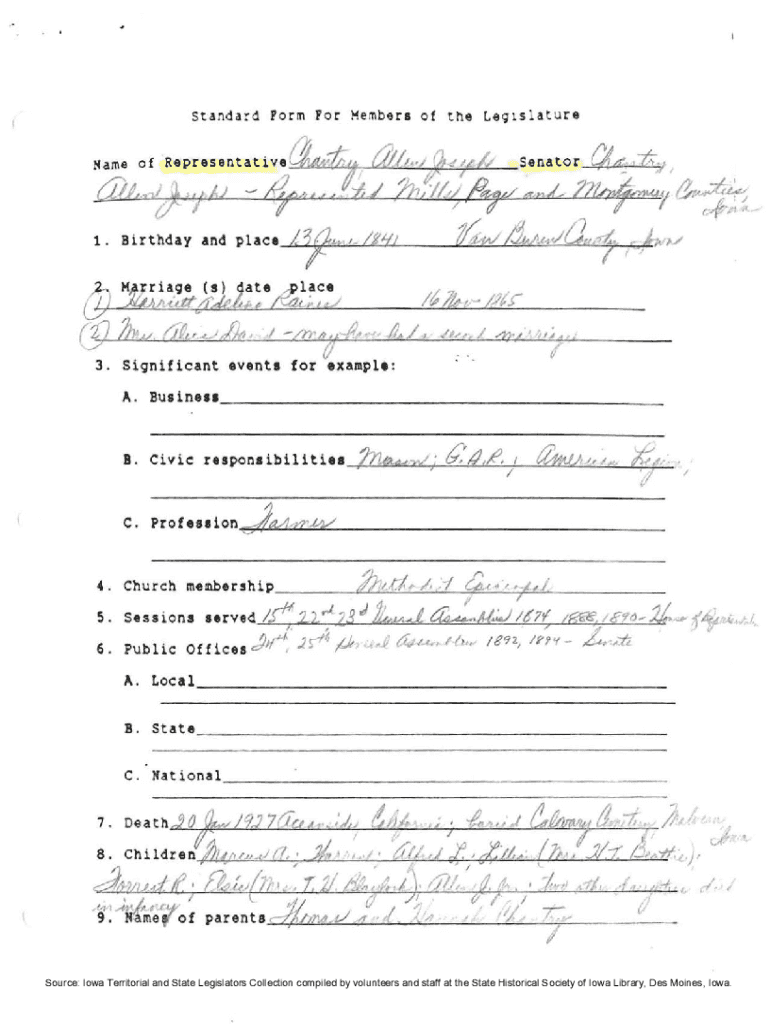 Standard Form For Members of the Legislature
Name of Representative Chantry, Allen Joseph Senator Chantry,
Allen Joseph - Represented Mills, Page and Montgomery Counties,
Iowa
1. Birthday and place 13 June 1841 Van Buren County, Iowa
2. Marriage (s) date place
(1) Harriett Adeline Raines 16 Nov 1865
(2) Mrs. Alice David - may have had a second marriage
3. Significant events for example:
A. Business
B. Civic responsibilities Mason; G.A.R.; American Legion;
C. Profession Farmer
4. Church membership Methodist Episcopal
5. Sessions served 15th, 22nd 23rd General Assemblies 1874, 1888, 1890 - House of Representatives
6. Public Offices 24th, 25th General Assemblies 1892, 1894 - Senate
A. Local
B. State
C. National
7. Death 20 Jan 1927 Oceanside, California; buried Calvary Cemetery, Malvern,
Iowa
8. Children Marcus A.; Alfred L.; Lillian (Mrs. H.T. Beattie);
Forrest R.; Elsie (Mrs. T. H. ); Allen J. Jr.; two other daughters died
in infancy
9. Names of parents Thomas and Hannah Chantry
Source: Iowa Territorial and State Legislators Collection compiled by volunteers and staff at the State Historical Society of Iowa Library, Des Moines, Iowa.